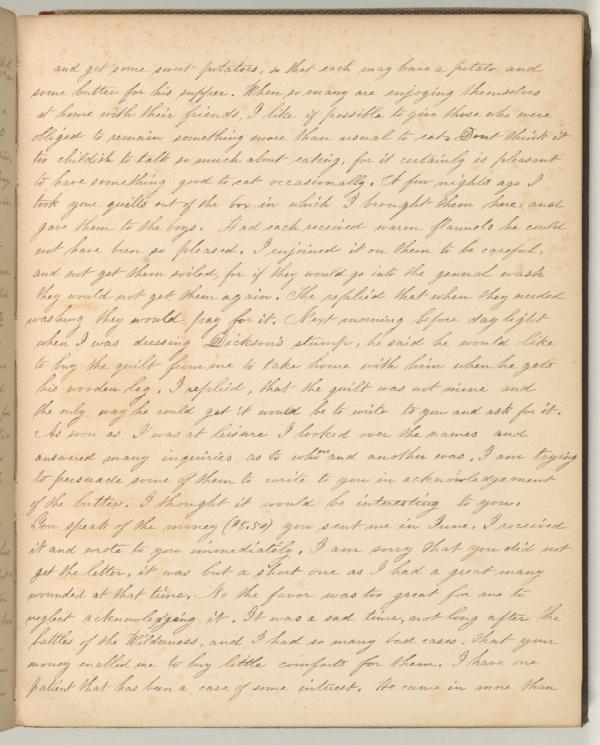 and get some sweet potatoes, so that each may have a potato and
some butter for his supper. When so many are enjoying themselves
at home with their friends, I like if possible to give those who were
obliged to remain something more than usual to eat. Dont think it
too childish to talk so much about eating, for it certainly is pleasant
to have something good to eat occasionally. A few nights ago I
took your quilts out of the box in which I brought them here, and
gave them to the boys. Had each received warm flannels he could
not have been so pleased. I enjoined it on them to be careful,
and not get them soiled, for if they would go into the general wash
they would not get them again. The replied that when they needed
washing they would pay for it. Next morning before day light
when I was dressing Dickson's stump, he said he would like
to buy the quilt from me to take home with him when he gets
his wooden leg. I replied, that the quilt was not mine and
the only way he could get it would be to write to you and ask for it.
As soon as I was at leisure I looked over the names and
answered many inquiries as to who one and another was. I am trying
to persuade some of them to write to you in acknowledgement
of the butter. I thought it would be interesting to you.
You speak of the money ($8.50) you sent me in June. I received
it and wrote to you immediately. I am sorry that you did not
get the letter, it was but a short one as I had a great many
wounded at that time. No the favor was too great for me to
neglect acknowledging it. It was a sad time, not long after the
battles of the Wilderness, and I had so many bad cases, that your
money enalled me to buy little comforts for them. I have one
patient that has been a case of some interest. He came in more than